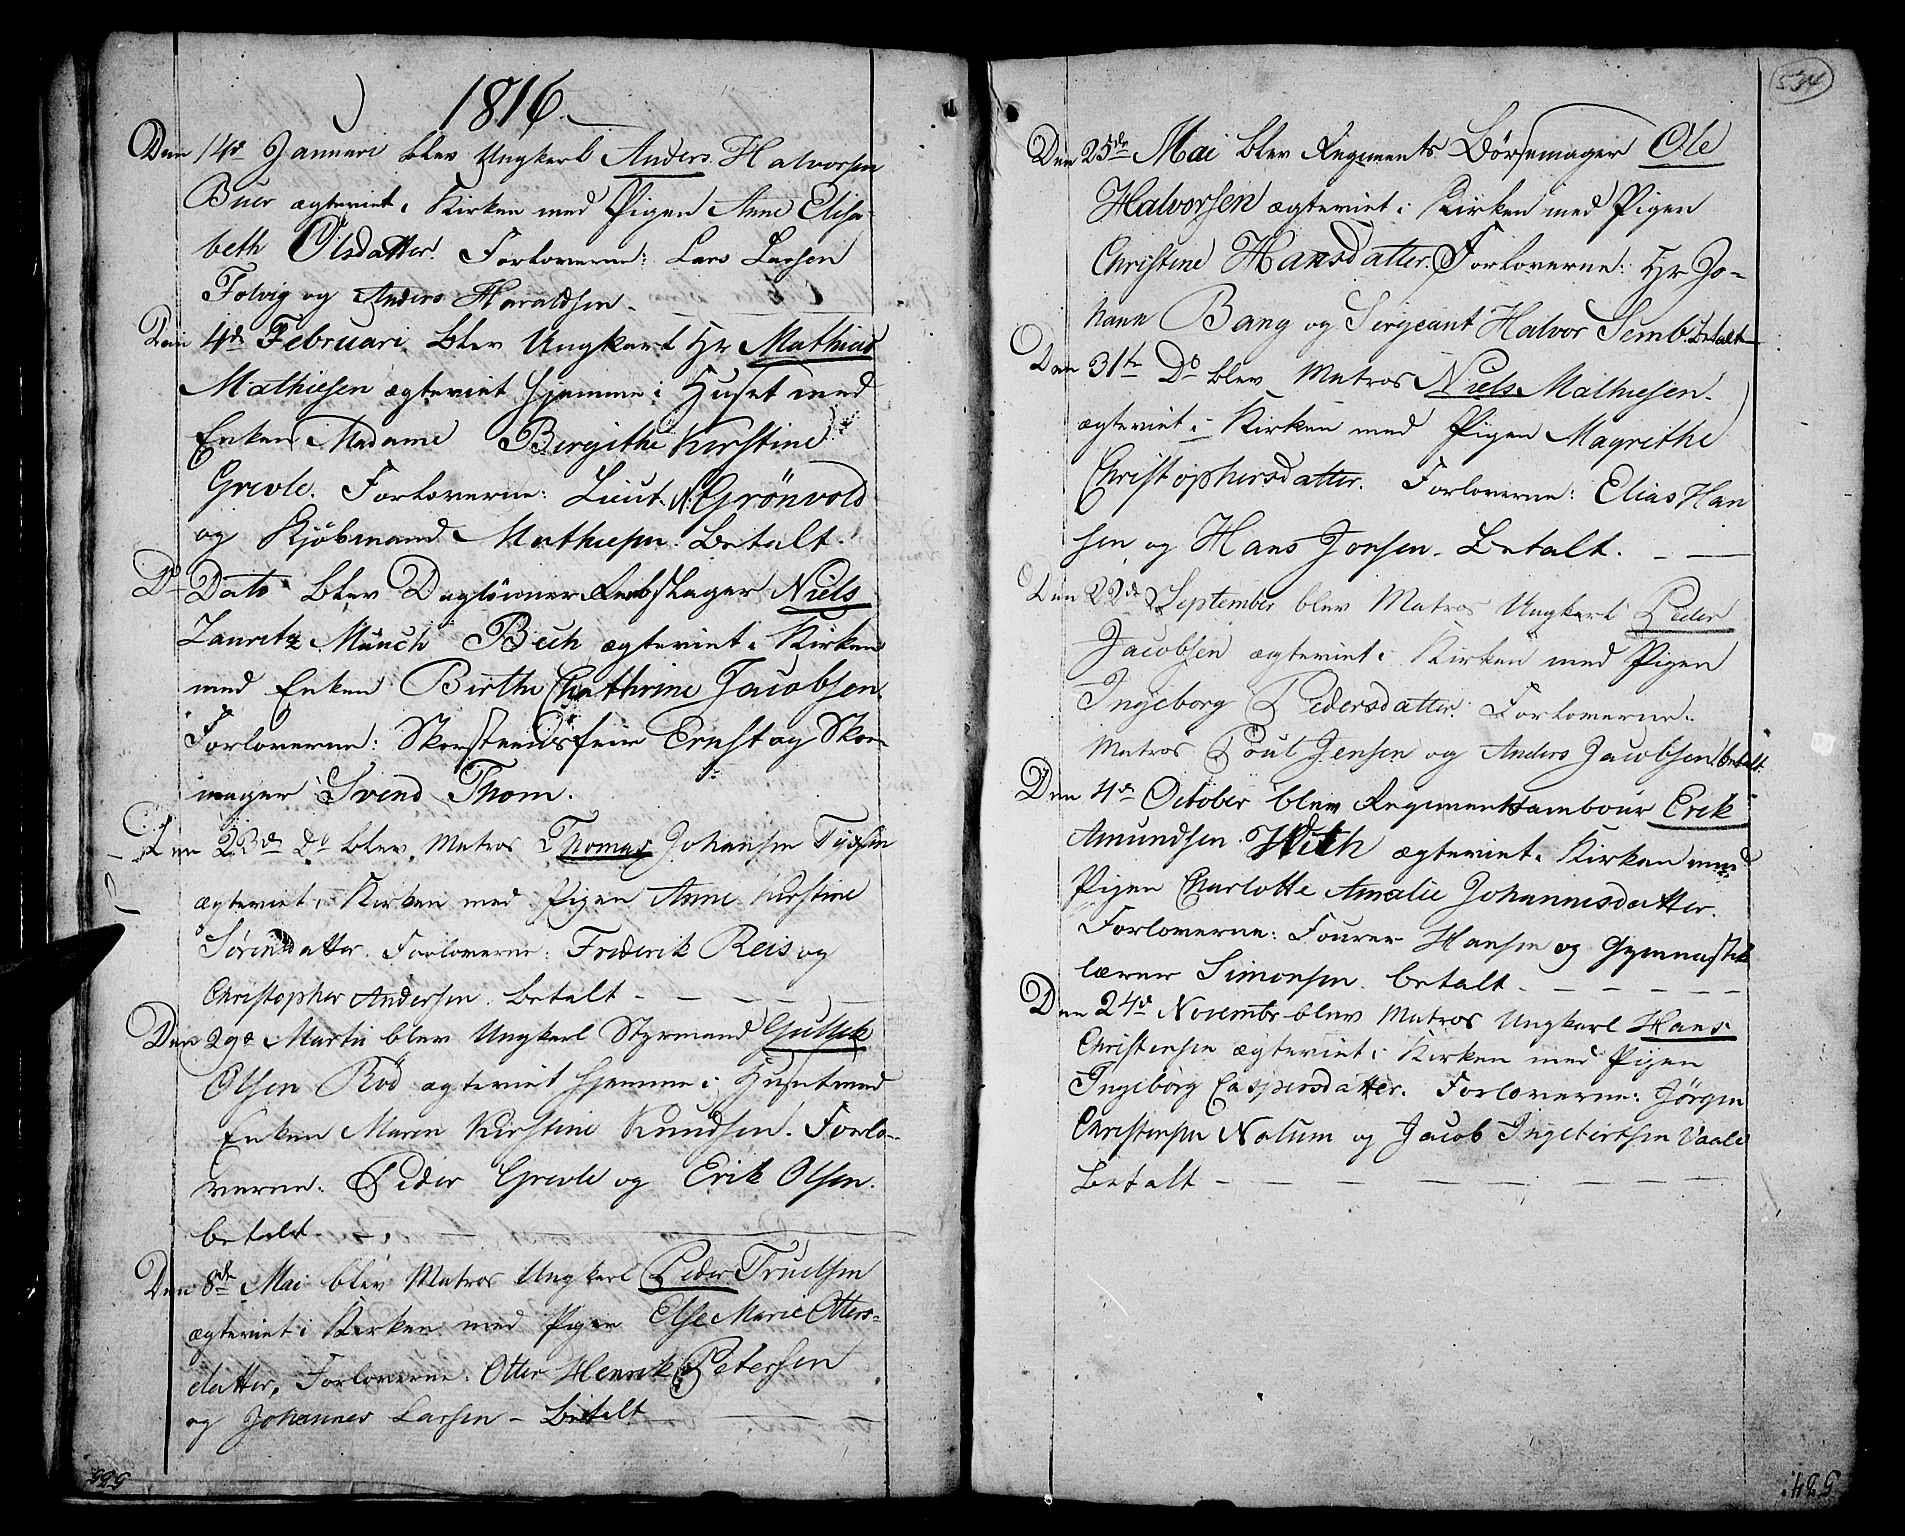 1816.
Den 14d Januari blev Ungkerl Anders Halvorsen
Buer ægteviet i Kirken med Pigen Anne Elisa-
beth Olsdatter. Forloverne: Lars Larsen
Tolvig og Anders Haraldsen -
Den 4de Februari blev Ungkarl Hr Mathias
Mathiesen ægteviet hjemme i Huset med
Enken Madame Birgithe Kirstine
Grevle. Forloverne: Lieut. N. Grönvold
og Kjöbmand Mathiesen. Betalt.
Do Dato blev Daglönner Rebslager Niels
Lauritz Münch Bech ægteviet i Kirken
med Enken Birthe Chathrine Jacobsen
Forloverne: Skorsteensfeier Ernst og Skoe-
mager Svend Thom.
Den 23de Do blev Matros Thomas Johansen
ægteviet i Kirken med Pigen Anne Kirstine
Sörensdatter. Forloverne: Frederik Reis og
Christopher Andersen. betalt - - - -
Den 29d Martii blev Ungkerl Styrmand Gullik
Olsen Röd ægteviet hjemme i Huset med
Enken Maren Kirstine Knudsen. Forlo-
verne: Peder Grevle og Erik Olsen.
betalt - . -
Den 8de Mai blev Matros Ungkerl Peder Truelsen
ægteviet i Kirken med Pigen Else Marie Otters-
datter, Forloverne: Otter Henrik Petersen
og Johannes Larsen - Betalt - - - -
525
534
Den 25de Mai blev Regiments Börsemager Ole
Halvorsen ægteviet i Kirken med Pigen
Christine Hansdatter. Forloverne: Hr Jo-
hann Bang og Sergeant Halvor Semb. Betalt
Den 31te Do blev Matros Niels Mathiesen
ægteviet i Kirken med Pigen Magrethe
Christophersdatter. Forloverne: Elias Han
sen og Hans Jonsen. Betalt. - -
Den 22de September blev Matros Ungkerl Peder
Jacobsen ægteviet i Kirken med Pigen
Ingeborg Pedersdatter. Forloverne:
Matros Poul Jensen og Anders Jacobsen. betalt
Den 4de October blev Regimentstambour Erik
Amundsen With ægteviet i Kirken med
Pigen Charlotte Amalie Johannesdatter.
Forloverne: Fourer Hansen og Gymnastik
lærer Simonsen. betalt - - - - -
Den 24d Novembr blev Matros Ungkerl Hans
Christensen ægteviet i Kirken med Pigen
Ingeborg Caspersdatter. Forloverne: Jörgen
Christensen Nolum og Jacob Ingebertsen Vaale
Betalt - - - - - - -
534